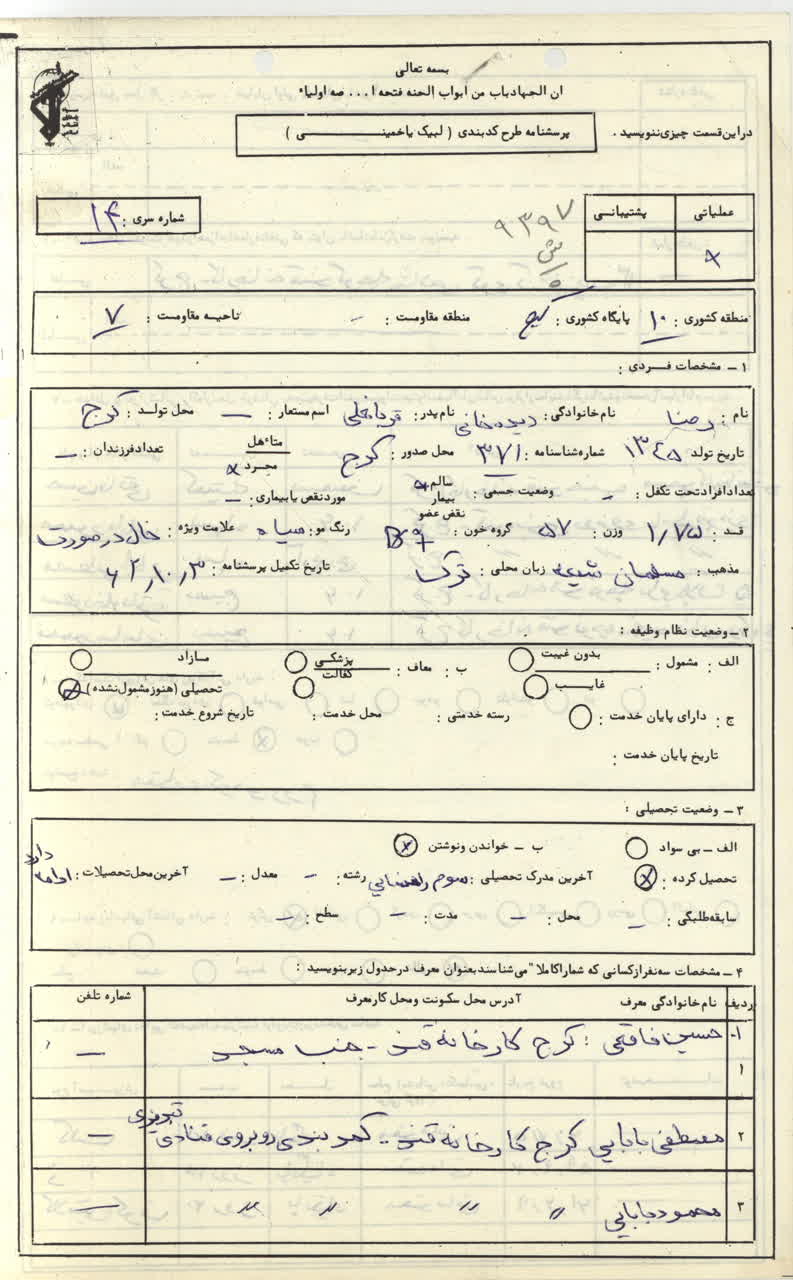 بسمه تعالی
ان الجهادباب من ابواب الجنه فتحه ا... صه اولیاء
دراین قسمت چیزی ننویسید .
پرسشنامه طرح کدبندی ( لبیک یاخمینــــــی )
شماره سری : ۱۴
۹۳۹۷
عملیاتی
پشتیبانی
منطقه کشوری : ۱۰ پایگاه کشوری : کرج منطقه مقاومت : - ناحیه مقاومت : ۷
۱ - مشخصات فردی :
نام : رضا نام خانوادگی : دیده خانی نام پدر : قربانعلی اسم مستعار : — محل تولد : کرج
تاریخ تولد ۱۳۴۵ شماره شناسنامه : ۳۷۱ محل صدور : کرج متاهل مجرد × تعدادفرزندان : —
تعدادافرادتحت تکفل : - وضعیت جسمی : سالم × بیمار نقص عضو موردنقص یابیماری : —
قد : ۱/۷۵ وزن : ۵۷ گروه خون : B+ رنگ مو : سیاه علامت ویژه : خال در صورت
مذهب : مسلمان شیعه زبان محلی : ترک تاریخ تکمیل پرسشنامه : ۶۲/۱۰/۳
۲ - وضعیت نظام وظیفه :
الف : مشمول : بدون غیبت غایب ب : معاف : پزشکی کفالت مازاد تحصیلی (هنوزمشمول نشده)
ج : دارای پایان خدمت : رسته خدمتی : محل خدمت : تاریخ شروع خدمت :
تاریخ پایان خدمت :
۳ - وضعیت تحصیلی :
الف - بی سواد ب - خواندن ونوشتن
تحصیل کرده : آخرین مدرک تحصیلی : سوم راهنمایی رشته : - معدل : - آخرین محل تحصیلات : ادامه دارد
سابقه طلبگی : - محل : - مدت : - سطح : -
۴ - مشخصات سه نفرازکسانی که شماراکاملا" می شناسندبعنوان معرف درجدول زیربنویسید :
ردیف نام خانوادگی معرف آدرس محل سکونت ومحل کارمعرف شماره تلفن
۱ حسین : کرج کارخانه قند - جنب مسجد —
۲ مصطفی بابایی کرج کارخانه قند - کمربندی روبروی قنادی تبریزی —
۳ محمود بابایی " " " " —